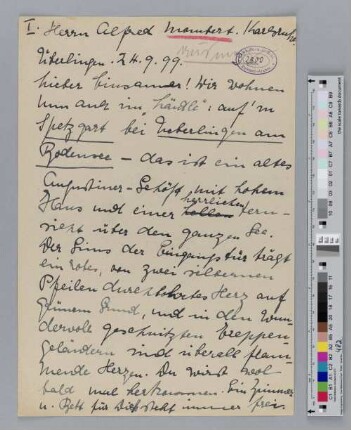 I. Herrn Alfred Mombert. Karlsruhe
Überlingen. 24.9.99.
Lieber Einsamer! Wir wohnen
nun auch im "Häusle": auf'm
Spetzgart bei Ueberlingen am
Bodensee – das ist ein altes
Augustiner-Schloß mit hohem
Haus und einer herrlichen Fern-
sicht über den ganzen See.
Der Sims der Eingangstür trägt
ein rotes, von zwei silbernen
Pfeilen durchbohrtes Herz auf
grünem Grund, und in den wun-
dervoll geschnitzten Treppen-
geländern sind überall flam-
mende Herzen. Du wirst wol
bald mal herkommen. Ein Zimmer
u. Bett für Dich steht immer frei.